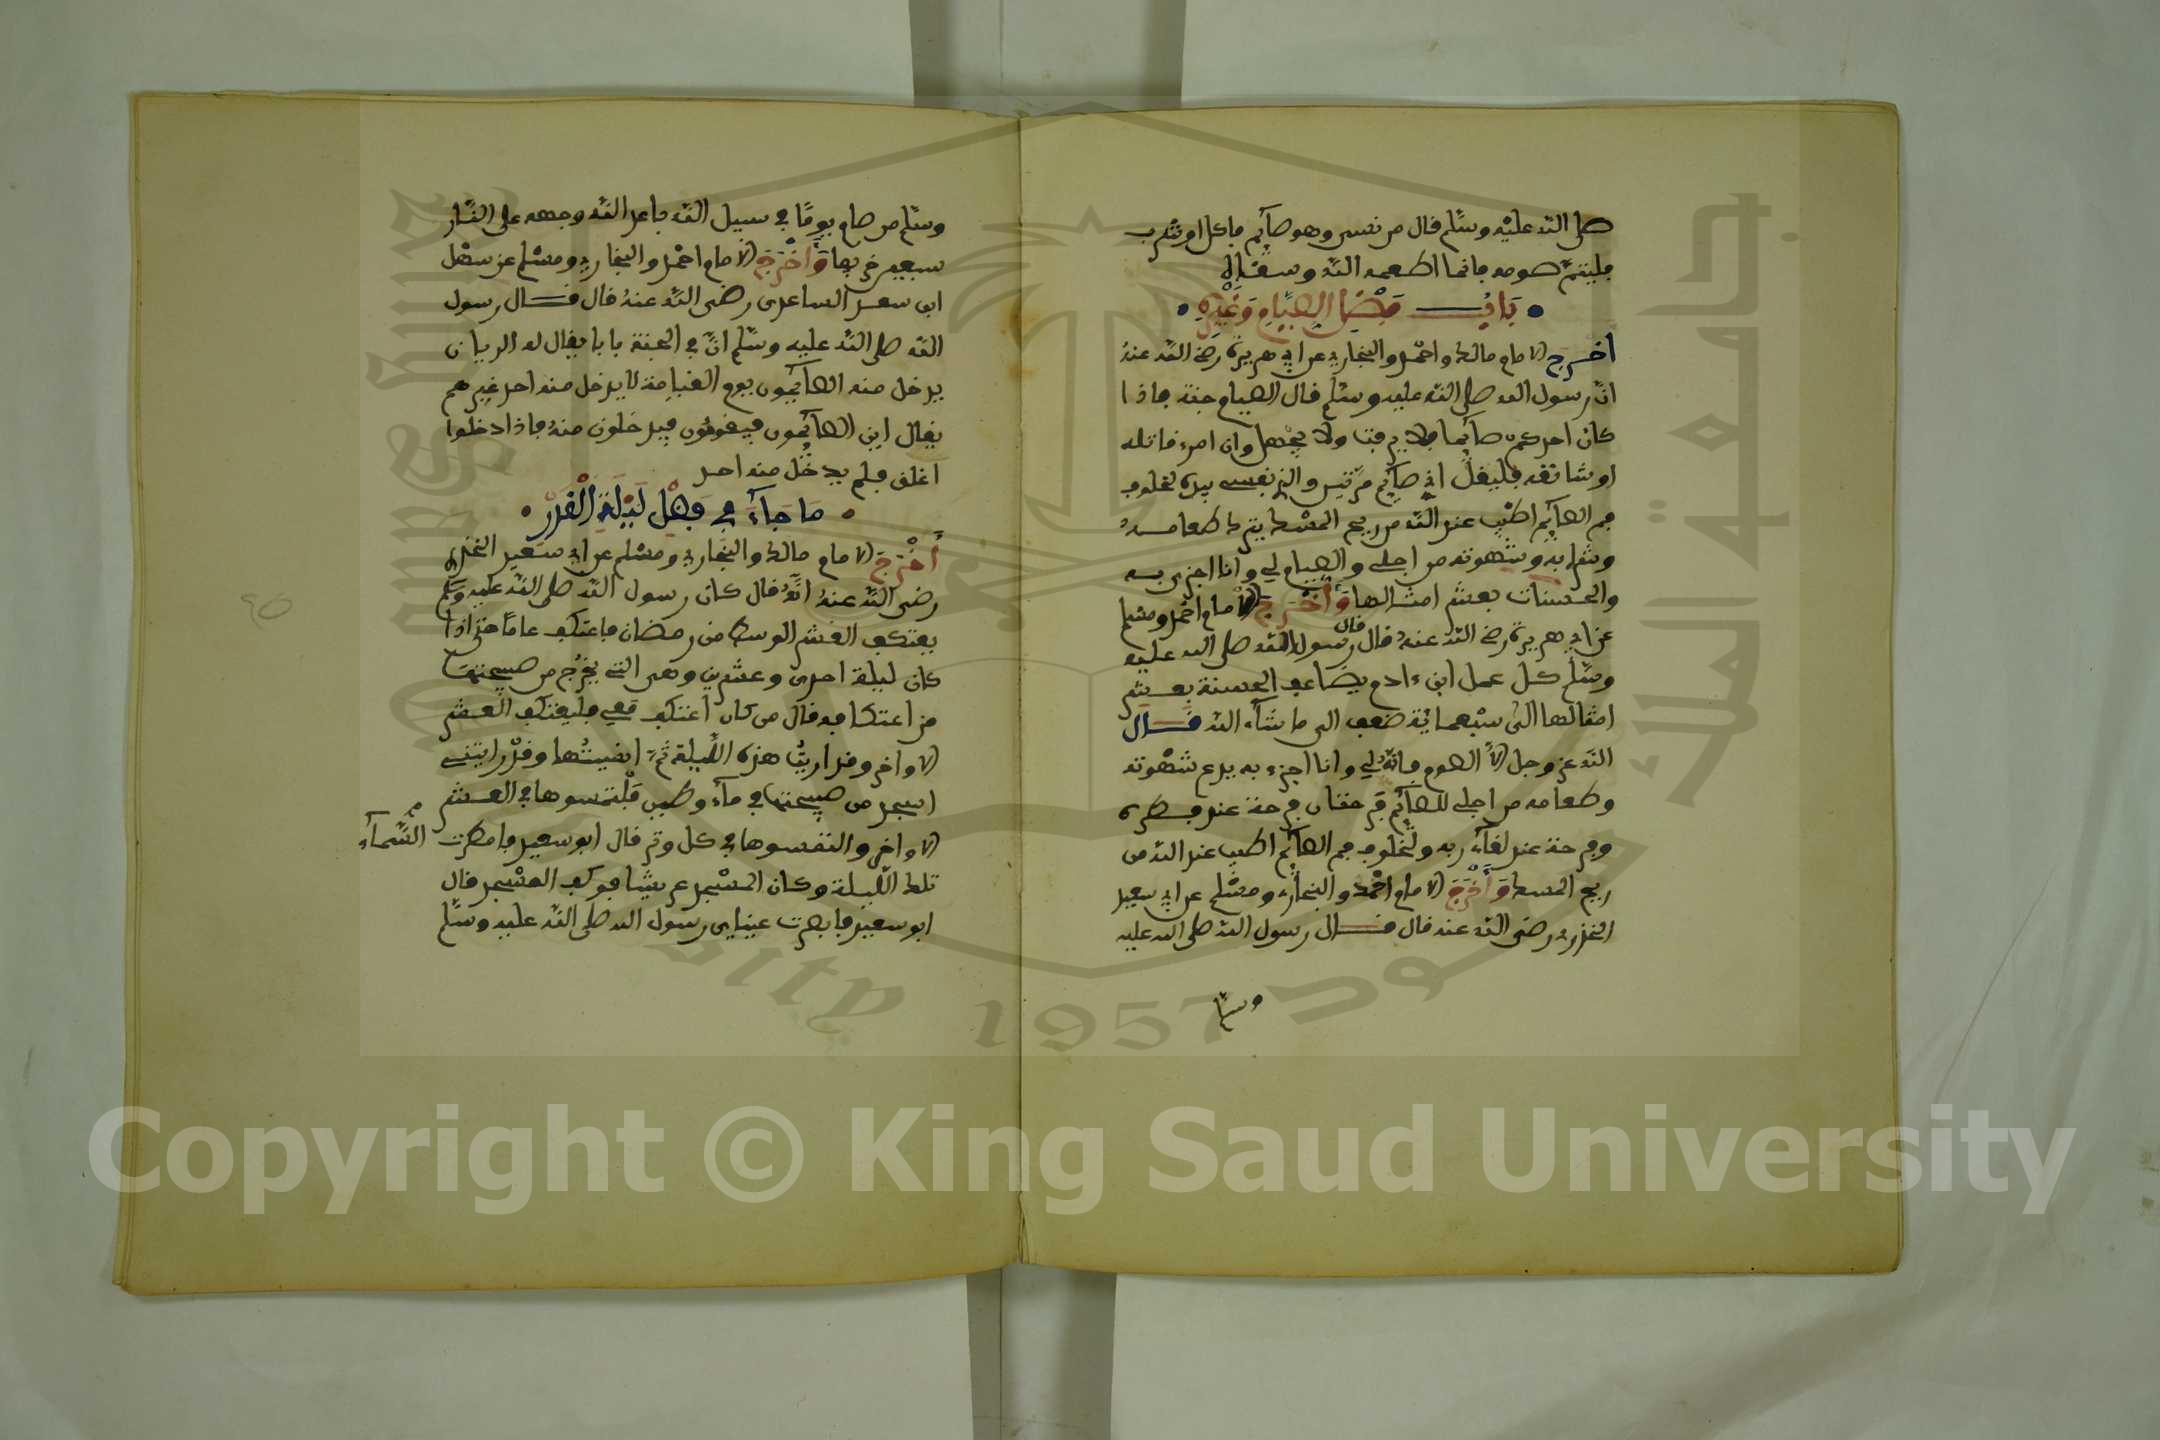 صلى الله عليه وسلم قال من نسي وهو صائم فاكل او شرب
فليتم صومه فانما اطعمه الله وسقاه
باب فضل الصيام وغيره
اخرج الامام مالك واحمد والبخاري عن ابي هريرة رضي الله عنه
ان رسول الله صلى الله عليه وسلم قال الصيام جنة فاذا
كان احدكم صائما فلا يرفث ولا يجهل وان امرء قاتله
او شاتمه فليقل اني صائم مرتين والذي نفسي بيده لخلوف
فم الصائم اطيب عند الله من ريح المسك يترك طعامه
وشرابه وشهوته من اجلي والصيام لي وانا اجزي به
والحسنات بعشر امثالها وأخرج الامام احمد ومسلم
عن ابي هريرة رضي الله عنه قال قال رسول الله صلى الله عليه
وسلم كل عمل ابن ءادم يضاعف الحسنة بعشر
امثالها الى سبعمائة ضعف الى ما شاء الله قال
الله عز وجل الا الصوم فانه لي وانا اجزء به يدع شهوته
وطعامه من اجلي للصائم فرحتان فرحة عند فطره
وفرحة عند لقاء ربه ولخلوف فم الصائم اطيب عند الله من
ريح المسك وأخرج الامام احمد والبخاري ومسلم عن ابي سعيد
الخدري رضي الله عنه قال قال رسول الله صلى الله عليه
وسلم
وسلم من صام يوما في سبيل الله باعد الله وجهه على النار
سبعين خريفا وأخرج الامام احمد والبخاري ومسلم عن سهل
ابن سعد الساعدي رضي الله عنه قال قال رسول
الله صلى الله عليه وسلم ان في الجنة بابا يقال له الريان
يدخل منه الصائمون يوم القيامة لا يدخل منه احد غيرهم
يقال اين الصائمون فيقومون فيدخلون منه فاذا دخلوا
اغلق فلم يدخل منه احد
ما جاء في فضل ليلة القدر
أخرج الامام مالك والبخاري ومسلم عن ابي سعيد الخدري
رضي الله عنه انه قال كان رسول الله صلى الله عليه وسلم
يعتكف العشر الوسط من رمضان فاعتكف عاما حتى اذا
كان ليلة احدى وعشرين وهي التي يخرج من صبيحتها
من اعتكافه قال من كان اعتكف معي فليعتكف العشر
الاواخر وقد اريت هذه الليلة ثم انسيتها وقد رايتني
اسجد من صبيحتها في ماء وطين فالتمسوها في العشر
الاواخر والتمسوها في كل وتر قال ابو سعيد فامطرت السماء
تلك الليلة وكان المسجد عريشا فوكف المسجد قال
ابو سعيد فابصرت عيناي رسول الله صلى الله عليه وسلم
جامعة الملك سعود
King Saud University 1957
Copyright © King Saud University